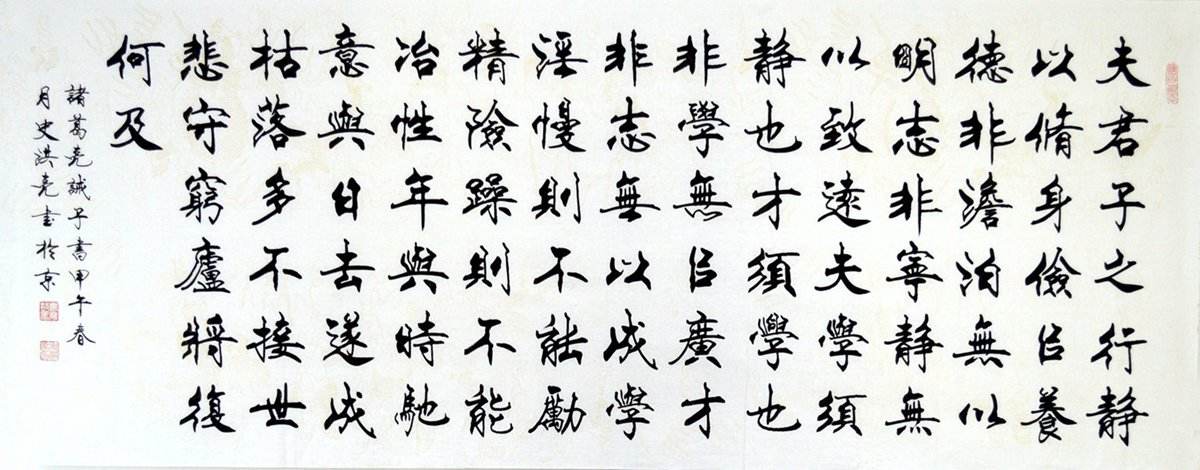 夫君子之行静
以脩身儉㠯養
德非澹泊無以
明志非寧静無
以致遠夫學須
静也才須學也
非學無㠯廣才
非志無以成學
淫慢則不能勵
精險躁則不能
冶性年與時馳
意與日去遂成
枯落多不接世
悲守窮廬將復
何及
諸葛亮誡子書甲午春
月史洪亮書於京